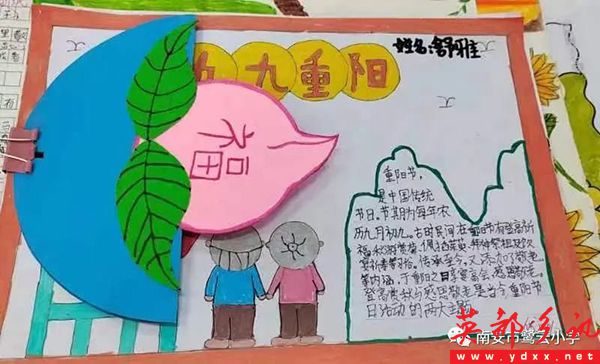 九九重阳
姓名:舒
福
重阳节,
是中国传统
节日,节期为每年农
历九月初九。古时民间在重阳节有登高祈
福、秋游赏菊、佩插茱萸、拜神祭祖及饮
宴祈寿等习俗。传承至今,又添加了敬老
等内涵,于重阳之日享宴高会,感恩敬老。
登高赏秋与感恩敬老是当今重阳节
日活动的两大主题
南安市鹭云小学
英都乡讯
www.ydxx.net